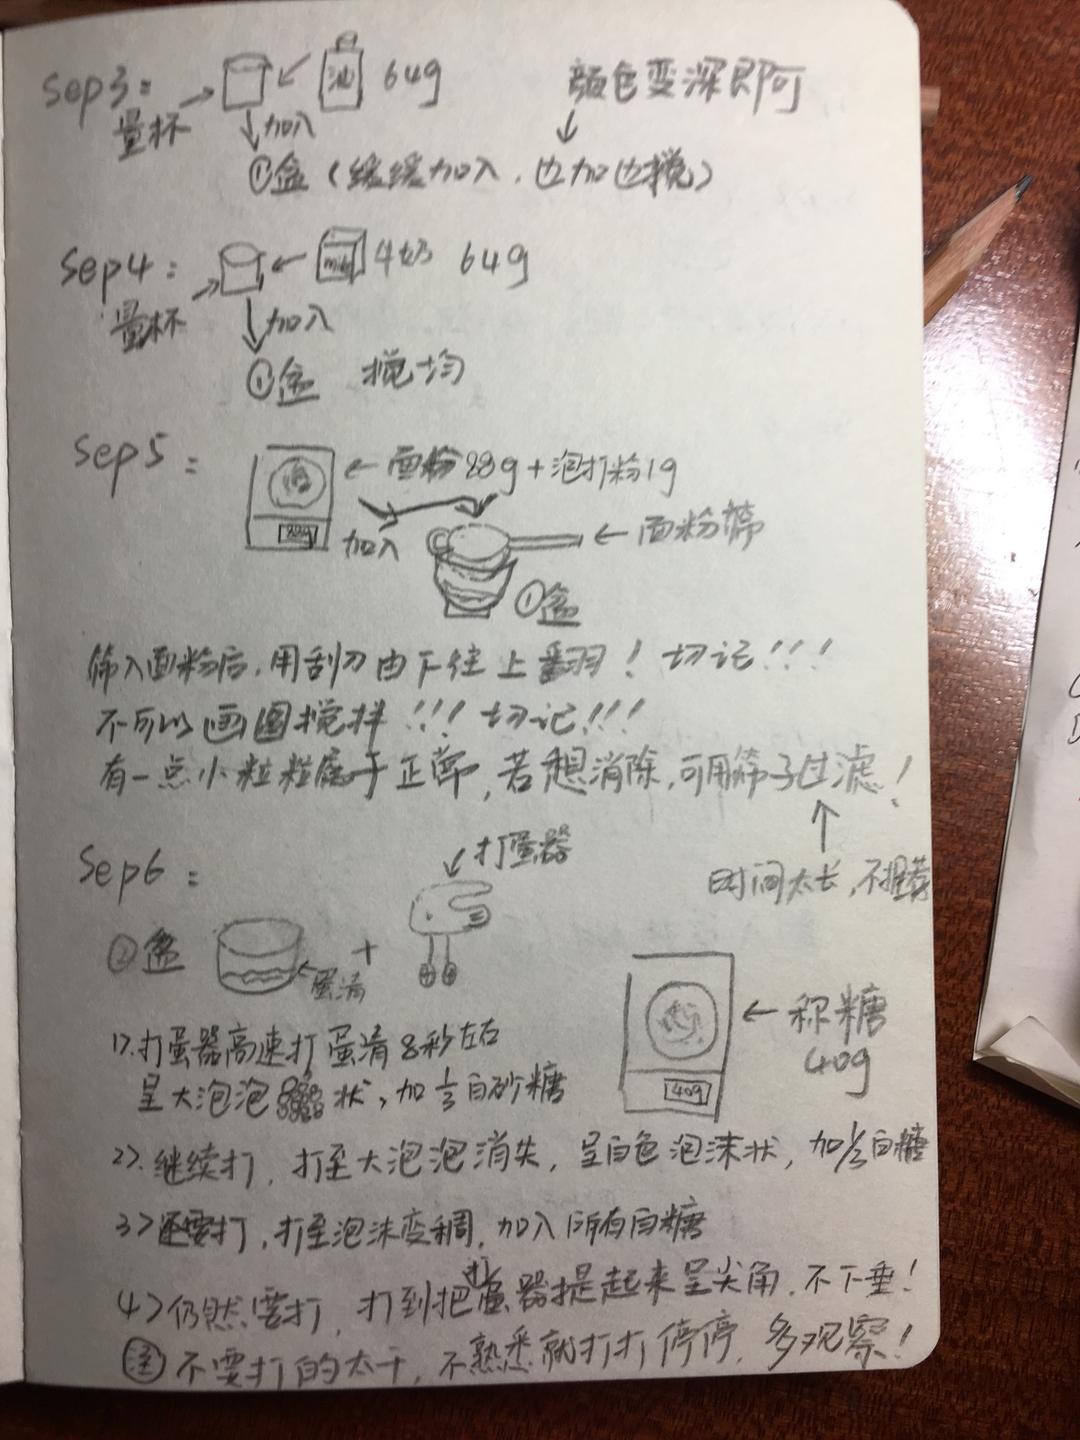 Sep3:
油 64g
颜色变深即可
量杯
加入
①盆（缓缓加入，边加边搅）
Sep4:
milk 牛奶 64g
量杯
加入
①盆 搅均
Sep5:
面粉88g+泡打粉1g
88g
加入
面粉筛
①盆
筛入面粉后，用刮刀由下往上翻！切记！！！
不可以画圈搅拌！！！切记！！！
有一点小粒粒属于正常，若想消除，可用筛子过滤！
时间太长，不推荐
Sep6:
打蛋器
②盆
+
蛋清
称糖
40g
40g
1>.打蛋器高速打蛋清8秒左右
呈大泡泡状，加⅓白砂糖
2>.继续打，打至大泡泡消失，呈白色泡沫状，加⅓白糖
3>还要打，打至泡沫变稠，加入所有白糖
4>仍然要打，打到把打蛋器提起来呈尖角，不下垂！
注 不要打的太干，不熟悉就打打停停，多观察！